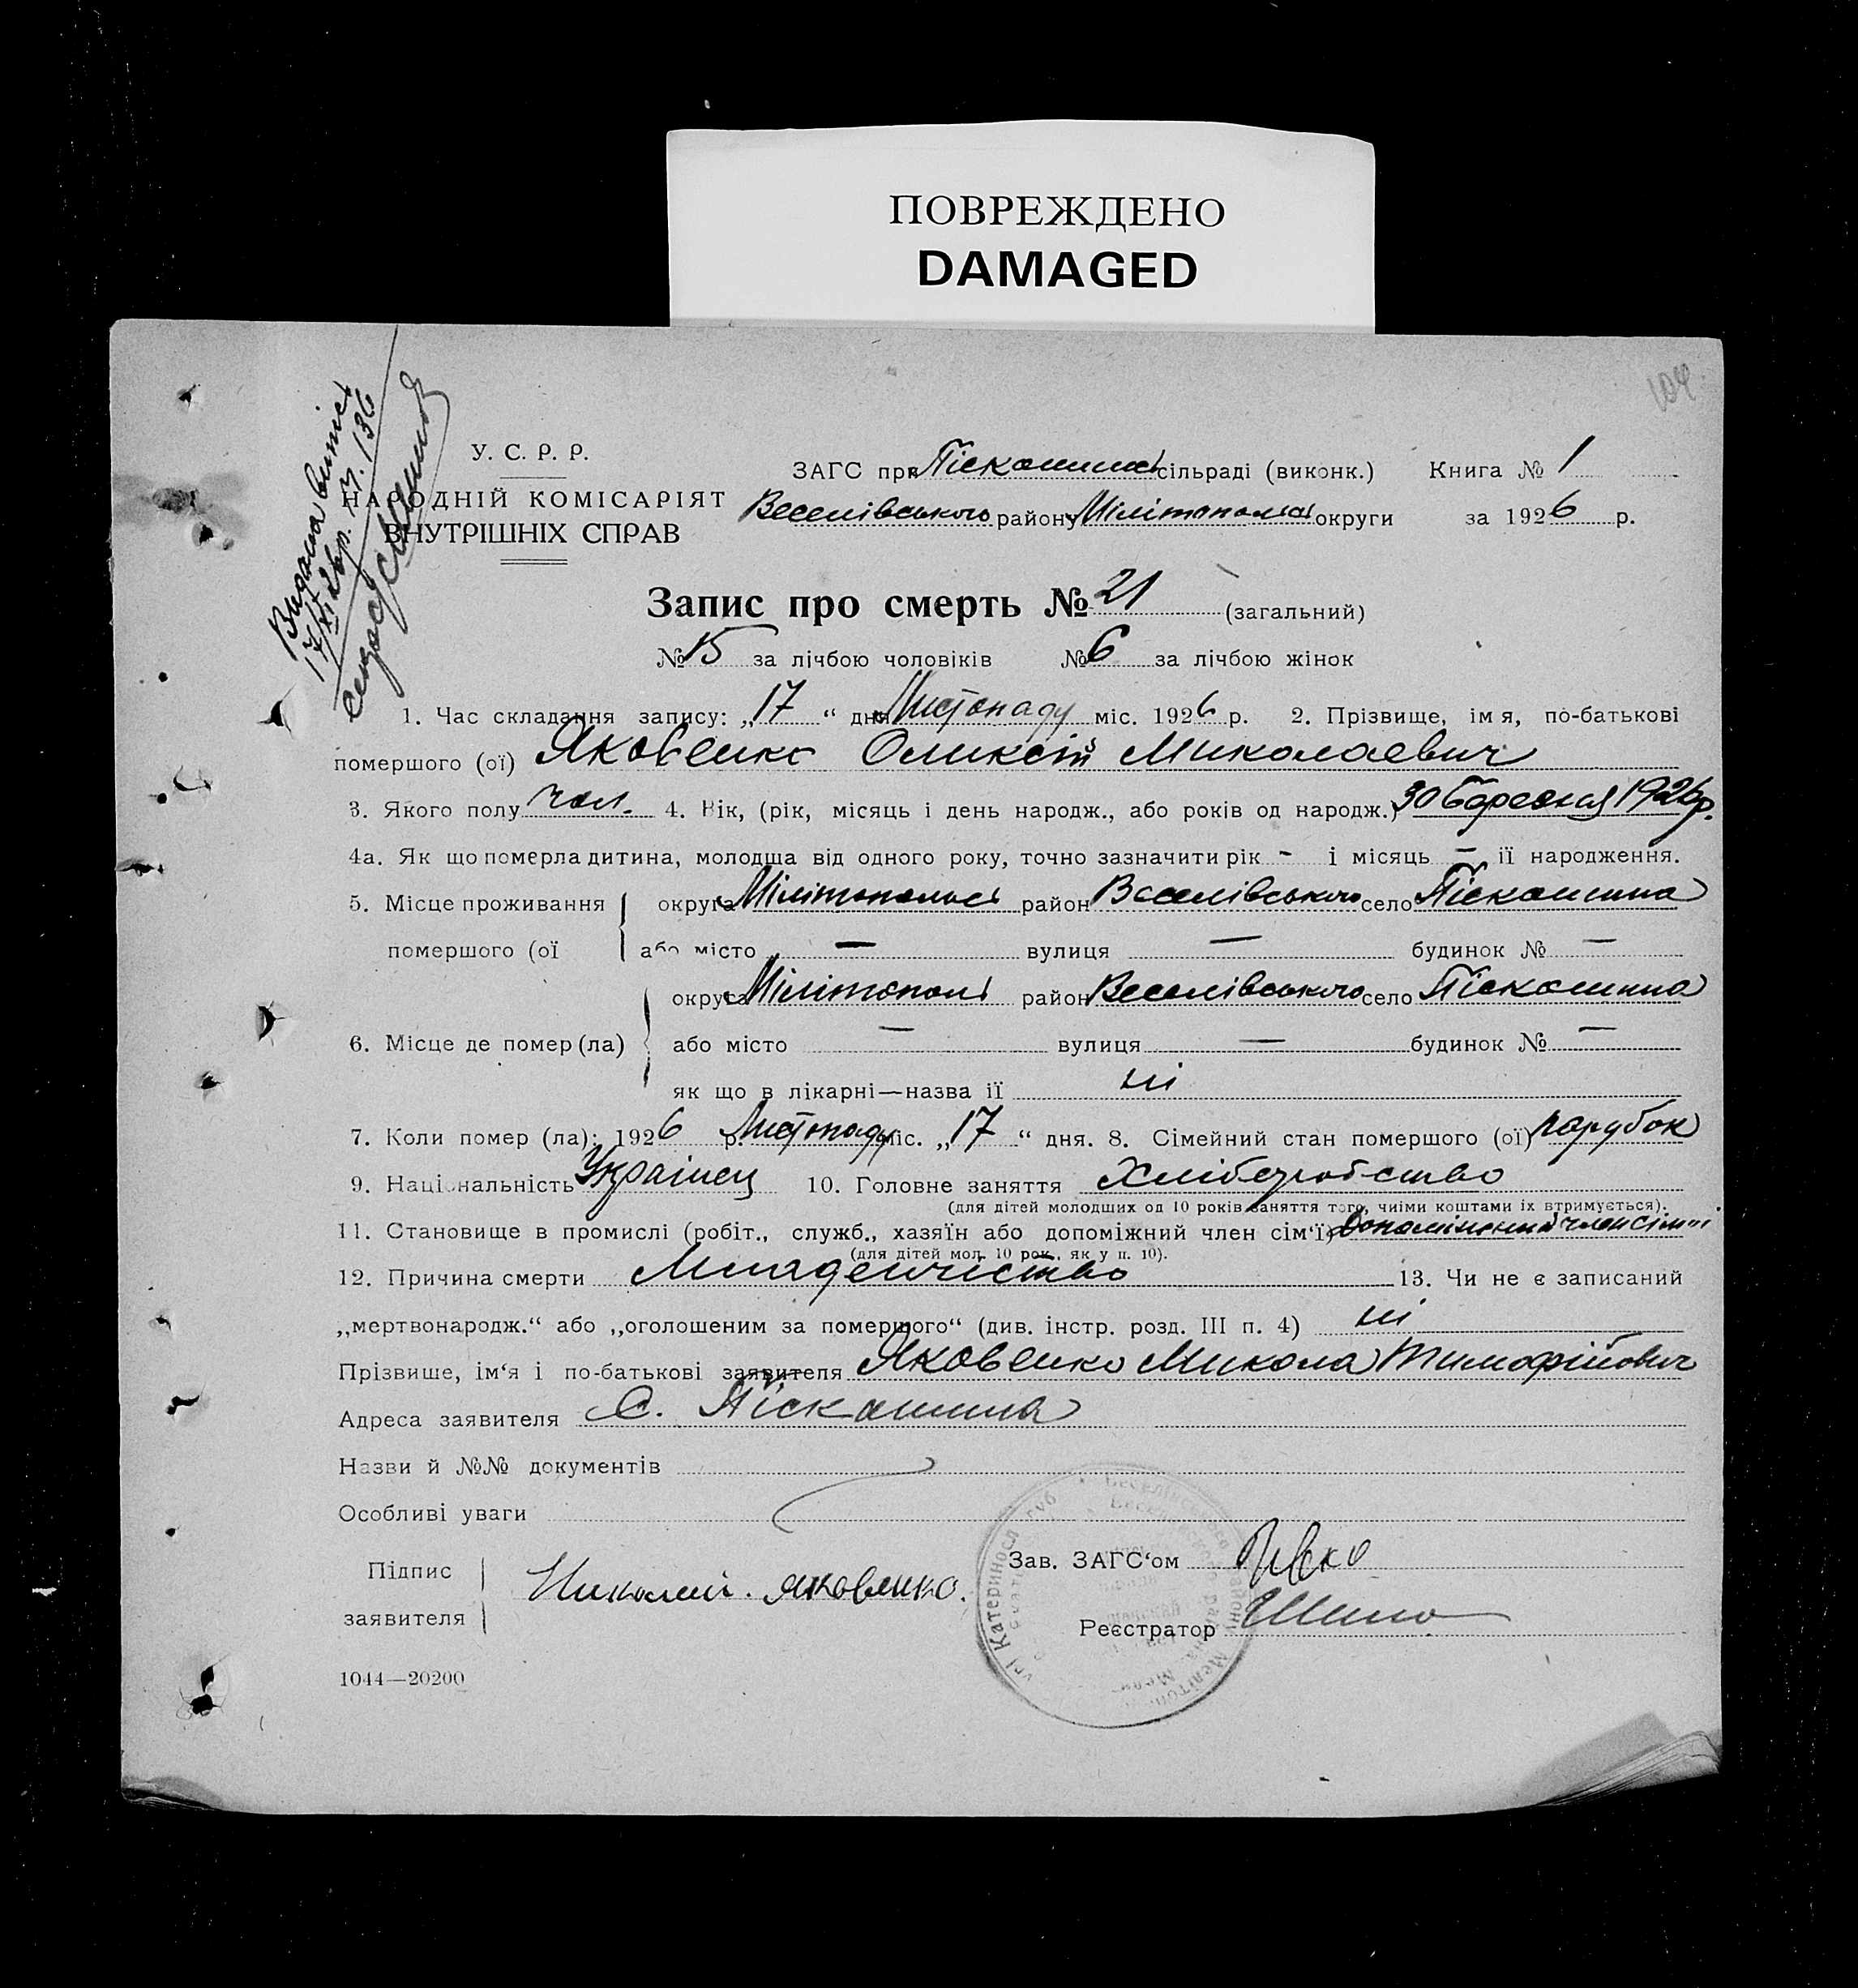 ПОВРЕЖДЕНО
DAMAGED
104
Видана випись
17/XI 26 р. №. 136
У. С. Р. Р.
НАРОДНІЙ КОМІСАРІЯТ
ВНУТРІШНІХ СПРАВ
ЗАГС при Піскошинській сільраді (виконк.) Книга № 1
Веселівського району Мілітопольської округи за 1926 р.
Запис про смерть № 21 (загальний)
№ 15 за лічбою чоловіків № 6 за лічбою жінок
1. Час складання запису: „17“ дня Листопаду міс. 1926 р. 2. Прізвище, імя, по-батькові
помершого (ої) Яковенко Оликсій Миколаевич
3. Якого полу чол. 4. Вік, (рік, місяць і день народж., або років од народж.) 30 Березня 1926 р.
4а. Як що померла дитина, молодша від одного року, точно зазначити рік - і місяць - її народження.
5. Місце проживання округа Мілітопольської район Веселівського село Піскошина
помершого (ої або місто — вулиця — будинок № —
округа Мілітополь район Веселівського село Піскошина
6. Місце де помер (ла) або місто — вулиця — будинок № —
як що в лікарні—назва ії ні
7. Коли помер (ла): 1926 р. Листопаду міс. „17“ дня. 8. Сімейний стан помершого (ої) парубок
9. Національність Украінец 10. Головне заняття Хліборобство
(для дітей молодших од 10 років заняття того, чиіми коштами іх втримується).
11. Становище в промислі (робіт., служб., хазяїн або допоміжний член сім'ї) Допоміжний член сімї
(для дітей мол. 10 рок., як у п. 10).
12. Причина смерти Младенчіство 13. Чи не є записаний
„мертвонародж.“ або „оголошеним за помершого“ (див. інстр. розд. III п. 4) ні
Прізвише, ім'я і по-батькові заявителя Яковенко Микола Тимофійович
Адреса заявителя С. Піскошина
Назви й №№ документів
Особливі уваги
Підпис
заявителя Николай Яковенко.
Зав. ЗАГС'ом
Реєстратор
1044—20200